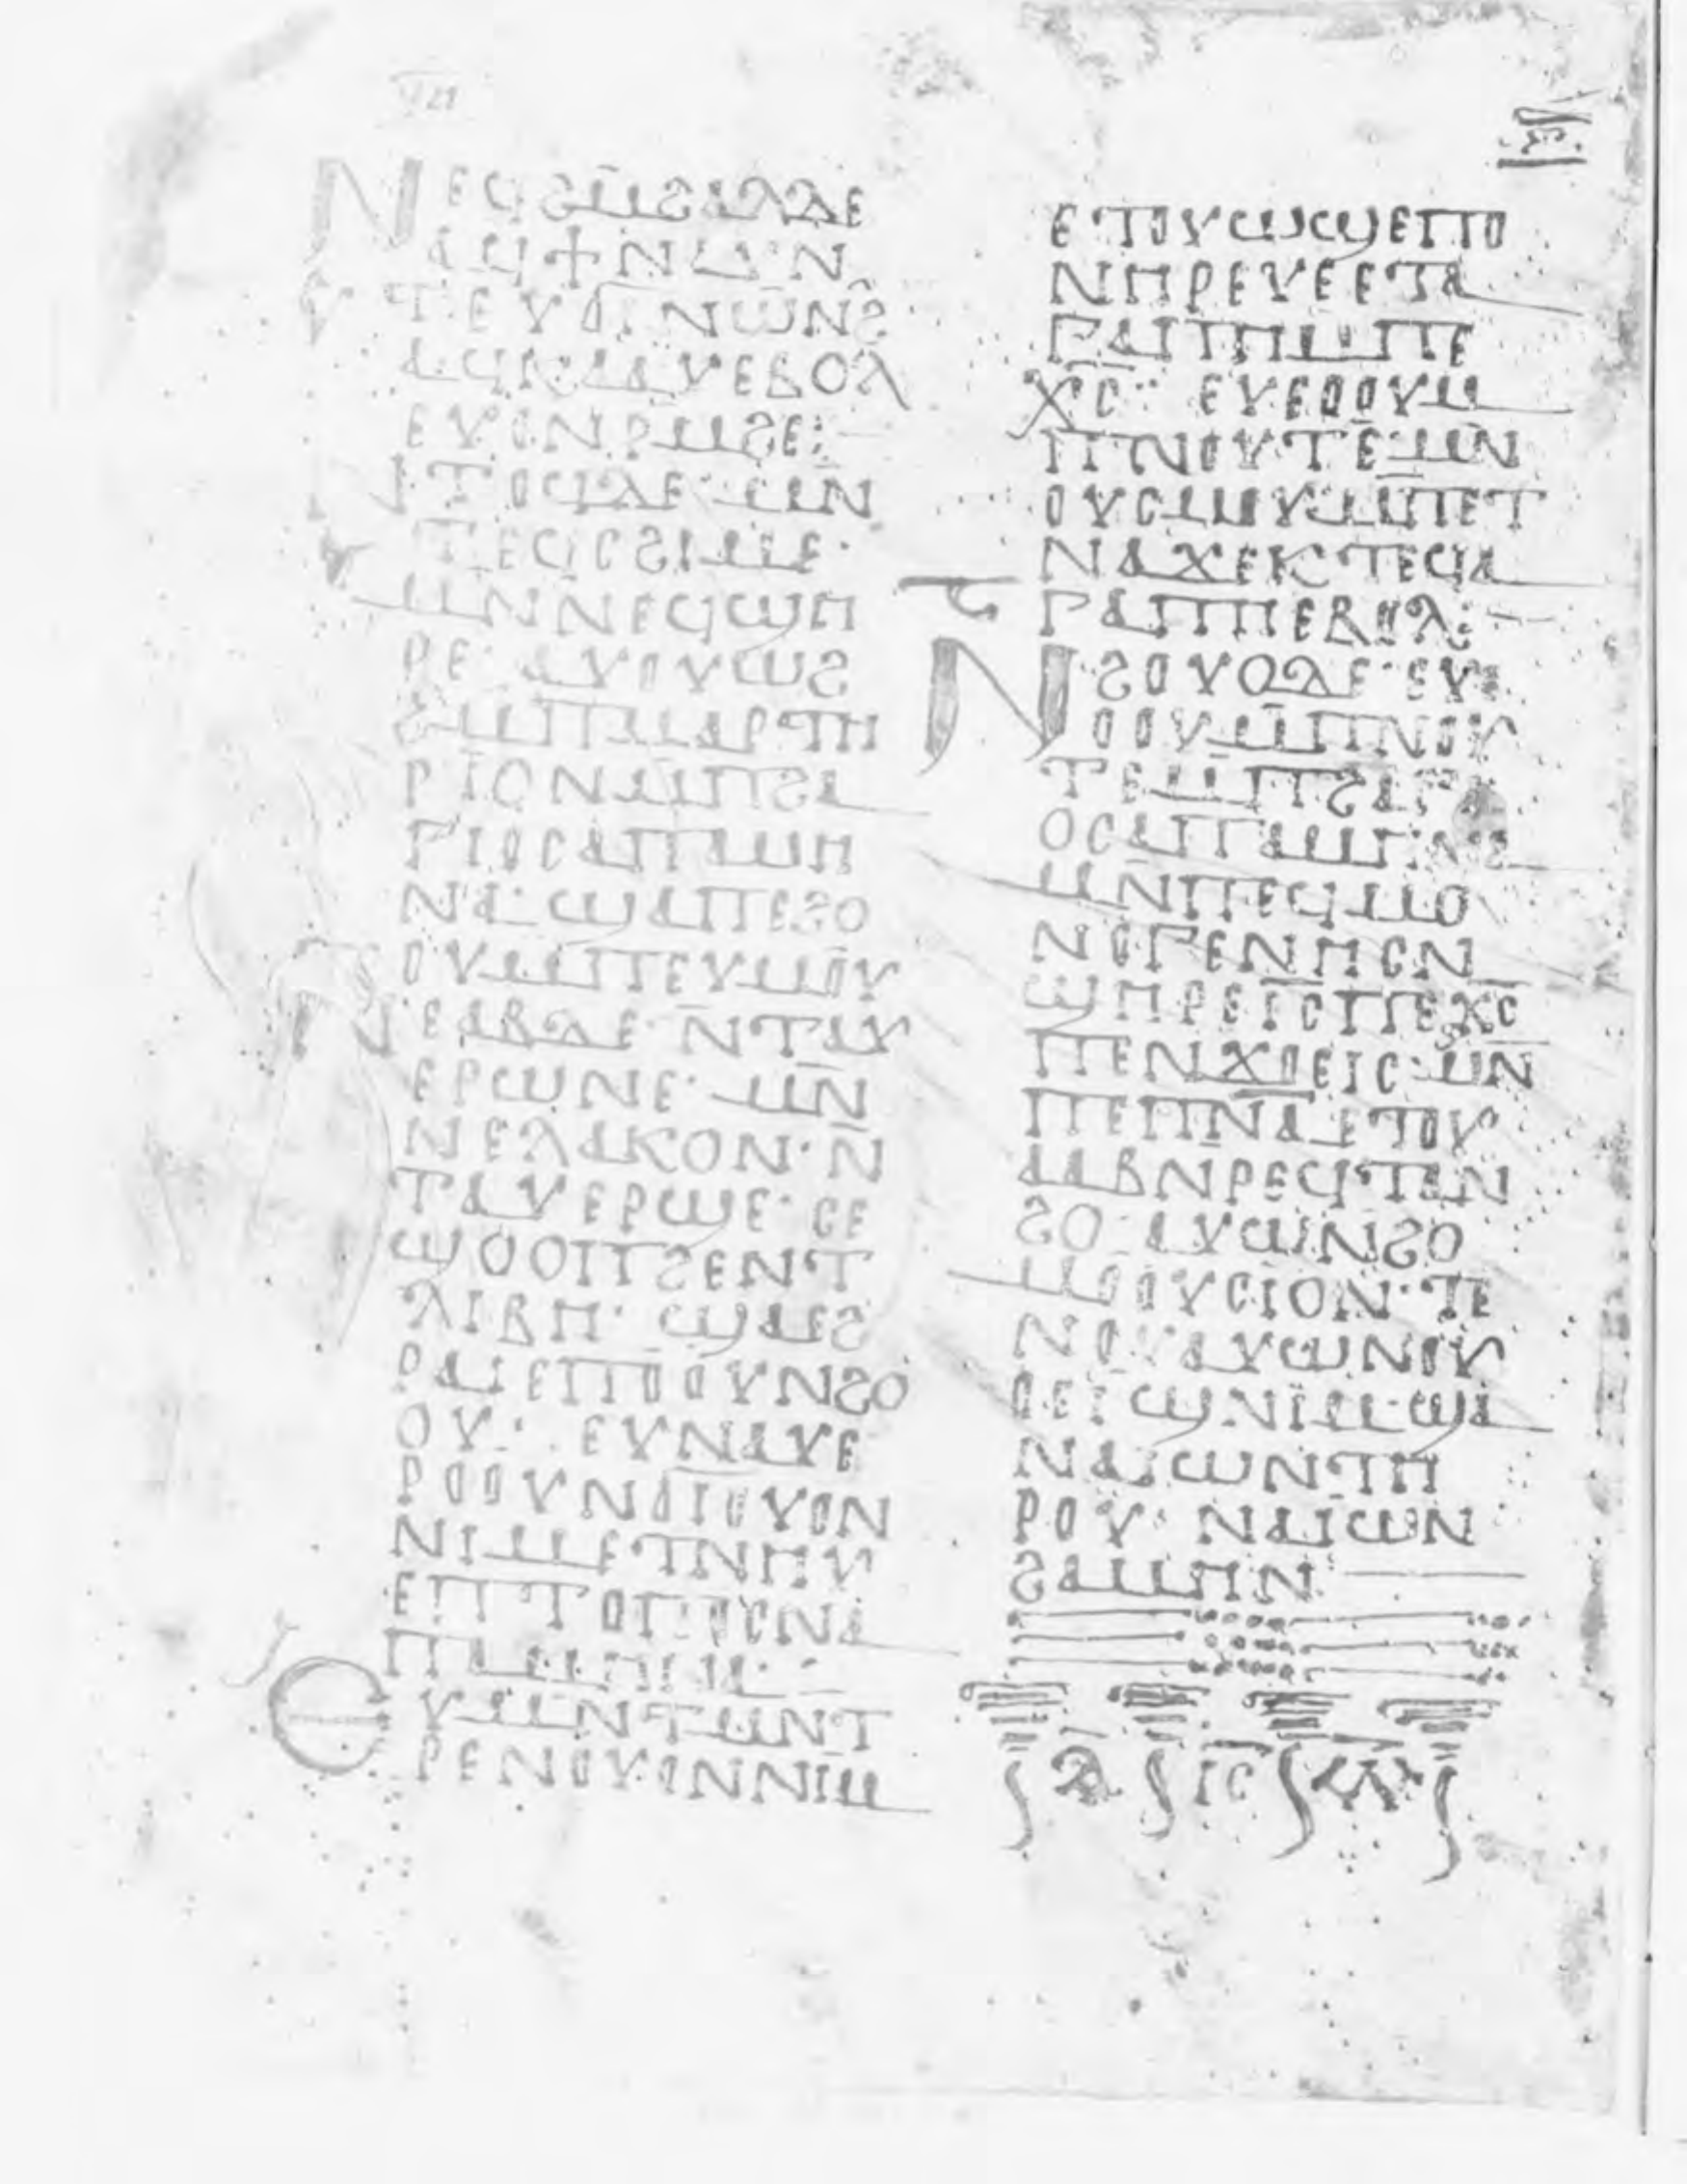 ⲛⲉϥϩⲙ̅ϩⲁⲗⲇⲉ
ⲁϥϯⲛⲁⲩ ⲛ̅
ⲧⲉⲩⲁⲓⲛⲱⲛ̅ϩ
ⲁϥⲕⲁⲁⲩ ⲉⲃⲟⲗ
ⲉⲩⲟⲛⲣⲙ̅ϩⲉ:
ⲛⲧⲟϥⲇⲉ· ⲙⲛ̅
ⲧⲉϥⲥϩⲓⲙⲉ·
ⲙⲛ̅ⲛⲉϥϣⲏ
ⲣⲉ· ⲁⲩⲟⲩⲱϩ
ϩⲙ̅ⲡⲙⲁⲣⲧⲏ
ⲣⲓⲟⲛ ⲙ̅ⲡϩⲁ
ⲅⲓⲟⲥ ⲁⲡⲁⲙⲏ
ⲛⲁ· ϣⲁⲡⲉϩⲟ
ⲟⲩ ⲙ̅ⲡⲉⲩⲙⲟⲩ
ⲛⲉϭⲃⲇⲉ· ⲛ̅ⲧⲁⲩ
ⲉⲣⲱⲛⲉ· ⲙⲛ̅
ⲛⲉⲗⲁⲕⲟⲛ· ⲛ̅
ⲧⲁⲩⲉⲣϣⲉ· ⲥⲉ
ϣⲟⲟⲡ ϩⲉⲛⲧ
ⲗⲓⲃⲏ· ϣⲁϩ
ⲣⲁⲓ ⲉⲡⲟⲟⲩⲛϩⲟ
ⲟⲩ·: ⲉⲩⲛⲁⲩⲉ
ⲣⲟⲟⲩ ⲛϭⲓⲟⲩⲟⲛ
ⲛⲓⲙ ⲉⲧⲛⲏⲩ
ⲉⲡⲧⲟⲡⲟⲥ ⲛⲁ
ⲡⲁⲙⲏⲛⲁ·
ⲉⲩⲙⲛⲧⲙⲛⲧ
ⲣⲉ ⲛⲟⲩⲟⲛⲛⲓⲙ
ⲉⲧⲟⲩⲱϣ ⲉⲡⲟ
ⲛⲏⲣⲉⲩⲉ ⲉⲧⲁ
ⲅⲁⲡⲏ ⲙ̅ⲡⲉ
ⲭ̅ⲥ̅·· ⲉⲩⲉⲟⲟⲩ ⲙ
ⲡⲛⲟⲩⲧⲉ· ⲙⲛ̅
ⲟⲩⲥⲙⲟⲩ ⲙ̅ⲡⲉⲧ
ⲛⲁϫⲉⲕ ⲧⲉϥⲁ
ⲅⲁⲡⲏ ⲉⲃⲟⲗ:
ⲛϩⲟⲩⲟⲇⲉ· ⲉⲩ
ⲉⲟⲟⲩ ⲙ̅ⲡⲛⲟⲩ
ⲧⲉ ⲙ̅ⲡϩⲁⲅⲓ
ⲟⲥ ⲁⲡⲁⲙⲏⲛⲁ
ⲙⲛ̅ⲡⲉϥⲙⲟ
ⲛⲟⲅⲉⲛⲏⲥ ⲛ
ϣⲏⲣⲉ ⲓ̅ⲥ̅ ⲡⲉⲭ̅ⲥ̅
ⲡⲉⲛϫⲟⲉⲓⲥ· ⲙⲛ̅
ⲡⲉⲡⲛ̅ⲁ̅ ⲉⲧⲟⲩ
ⲁⲁⲃ ⲛ̅ⲣⲉϥⲧⲁⲛ
ϩⲟ· ⲁⲩⲱ ⲛϩⲟ
ⲙⲟⲟⲩⲥⲓⲟⲛ· ⲧⲉ
ⲛⲟⲩ ⲁⲩⲱ ⲛⲟⲩ
ⲟⲉⲓϣ ⲛⲓⲙ· ϣⲁ
ⲛⲁⲓⲱⲛ ⲧⲏ
ⲣⲟⲩ· ⲛⲁⲓⲱⲛ
ϩⲁⲙⲏⲛ
ⲓ̅ⲥ̅